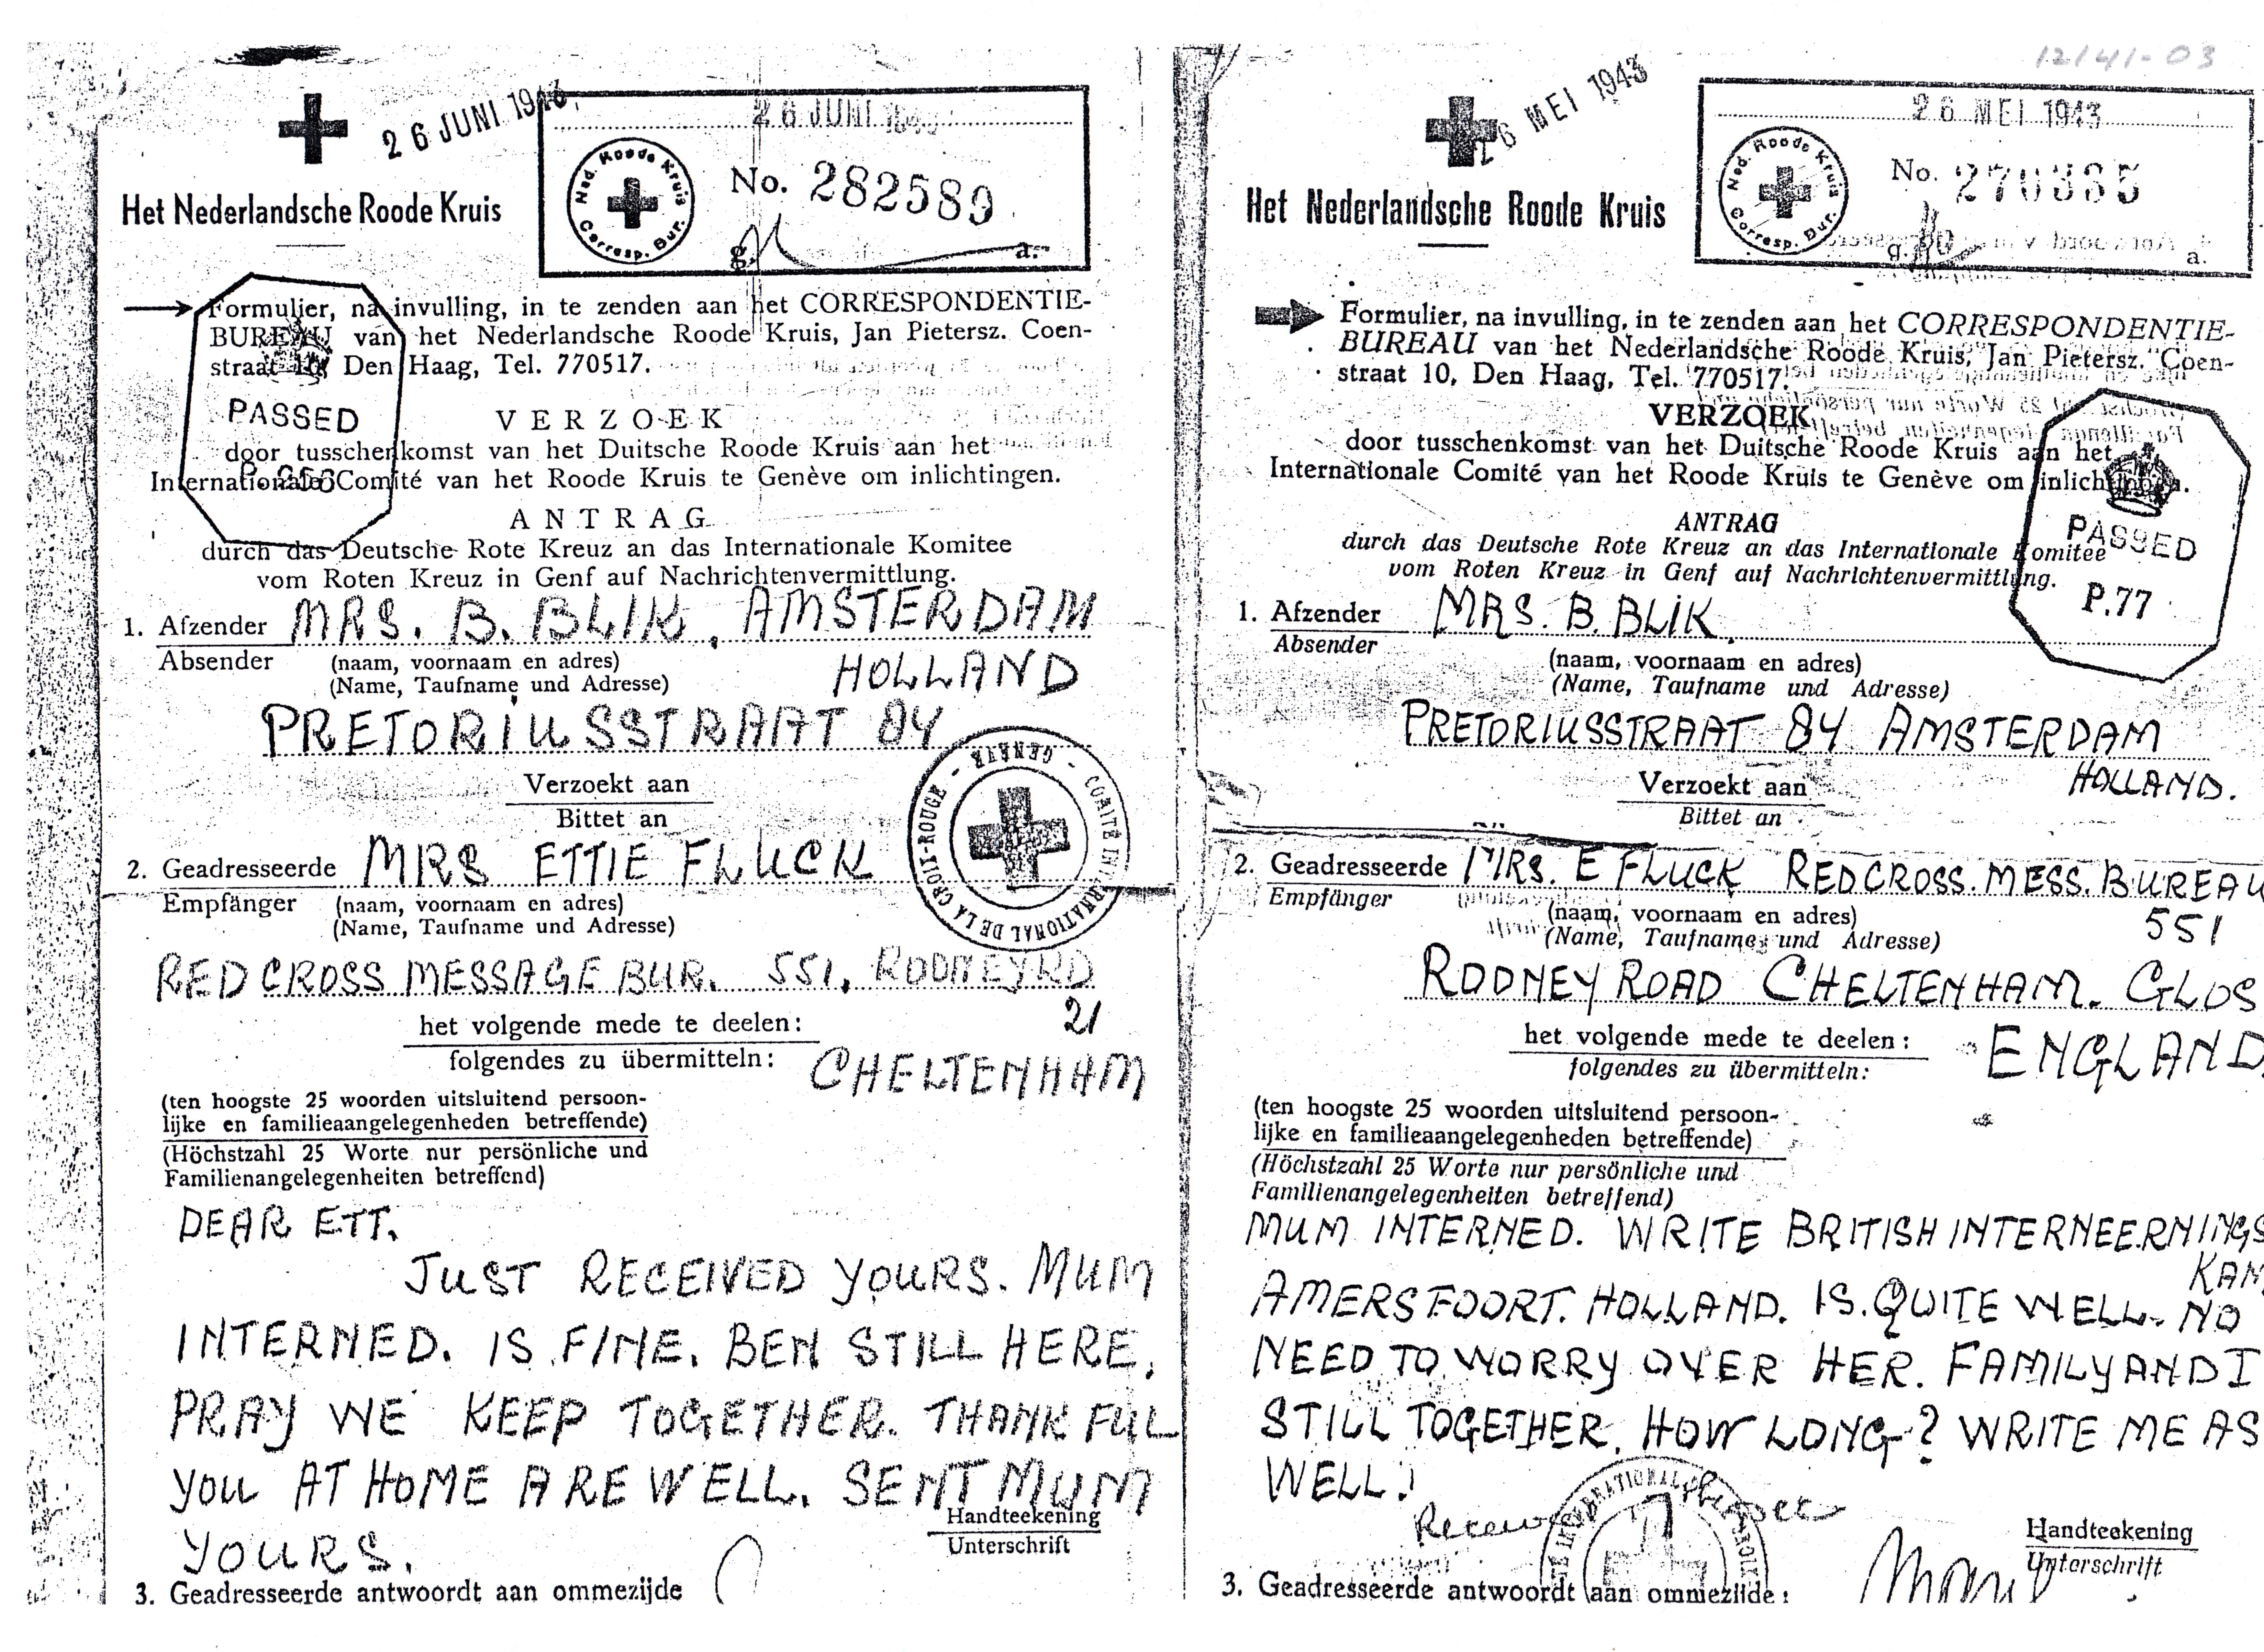 12141-03
26 JUNI 1943
26 JUNI 1943
Ned. Roode Kruis
Corresp. Bur.
No. 282589
g. a.
Het Nederlandsche Roode Kruis
Formulier, na invulling, in te zenden aan het CORRESPONDENTIE-
BUREAU van het Nederlandsche Roode Kruis, Jan Pietersz. Coen-
straat 10, Den Haag, Tel. 770517.
PASSED
VERZOEK
door tusschenkomst van het Duitsche Roode Kruis aan het
Internationale Comité van het Roode Kruis te Genève om inlichtingen.
ANTRAG
durch das Deutsche Rote Kreuz an das Internationale Komitee
vom Roten Kreuz in Genf auf Nachrichtenvermittlung.
1. Afzender MRS. B. BLIK, AMSTERDAM
Absender (naam, voornaam en adres) HOLLAND
(Name, Taufname und Adresse)
PRETORIUSSTRAAT 84
COMITÉ INTERNATIONAL DE LA CROIX-ROUGE - GENÈVE -
Verzoekt aan
Bittet an
2. Geadresseerde MRS ETTIE FLUCK
Empfänger (naam, voornaam en adres)
(Name, Taufname und Adresse)
RED CROSS MESSAGE BUR. 551, RODNEY RD
21
het volgende mede te deelen:
folgendes zu übermitteln: CHELTENHAM
(ten hoogste 25 woorden uitsluitend persoon-
lijke en familieaangelegenheden betreffende)
(Höchstzahl 25 Worte nur persönliche und
Familienangelegenheiten betreffend)
DEAR ETT.
JUST RECEIVED YOURS. MUM
INTERNED. IS FINE. BEN STILL HERE.
PRAY WE KEEP TOGETHER. THANKFUL
YOU AT HOME ARE WELL. SENT MUM
YOURS.
Handteekening
Unterschrift
3. Geadresseerde antwoordt aan ommezijde
26 MEI 1943
26 MEI 1943
Ned. Roode Kruis
Corresp. Bur.
No. 270335
g. a.
Het Nederlandsche Roode Kruis
Formulier, na invulling, in te zenden aan het CORRESPONDENTIE-
BUREAU van het Nederlandsche Roode Kruis, Jan Pietersz. Coen-
straat 10, Den Haag, Tel. 770517.
VERZOEK
door tusschenkomst van het Duitsche Roode Kruis aan het
Internationale Comité van het Roode Kruis te Genève om inlichtingen.
ANTRAG
durch das Deutsche Rote Kreuz an das Internationale Komitee
vom Roten Kreuz in Genf auf Nachrichtenvermittlung.
PASSED
P.77
1. Afzender MRS. B. BLIK
Absender
(naam, voornaam en adres)
(Name, Taufname und Adresse)
PRETORIUSSTRAAT 84 AMSTERDAM
HOLLAND.
Verzoekt aan
Bittet an
2. Geadresseerde MRS. E FLUCK RED CROSS. MESS. BUREAU
Empfänger (naam, voornaam en adres) 551
(Name, Taufname und Adresse)
RODNEY ROAD CHELTENHAM. GLOS
het volgende mede te deelen: ENGLAND.
folgendes zu übermitteln:
(ten hoogste 25 woorden uitsluitend persoon-
lijke en familieaangelegenheden betreffende)
(Höchstzahl 25 Worte nur persönliche und
Familienangelegenheiten betreffend)
MUM INTERNED. WRITE BRITISH INTERNEERNINGS
KAM
AMERSFOORT. HOLLAND. IS QUITE WELL. NO
NEED TO WORRY OVER HER. FAMILY AND I
STILL TOGETHER. HOW LONG? WRITE ME AS
WELL!
Handteekening
Unterschrift
3. Geadresseerde antwoordt aan ommezijde: